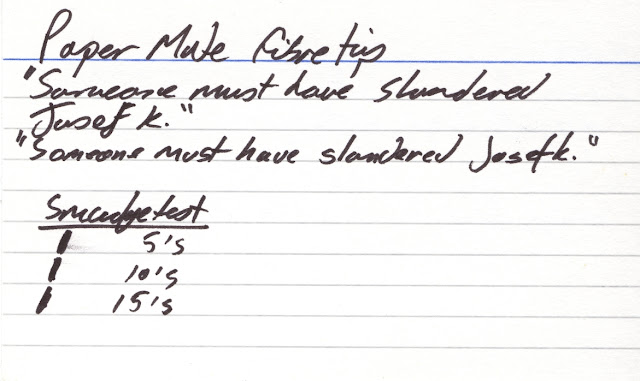 Paper Mate Fibretip
"Someone must have slandered
Josef K."
"Someone must have slandered Josef K."
Smudge test
5's
10's
15's